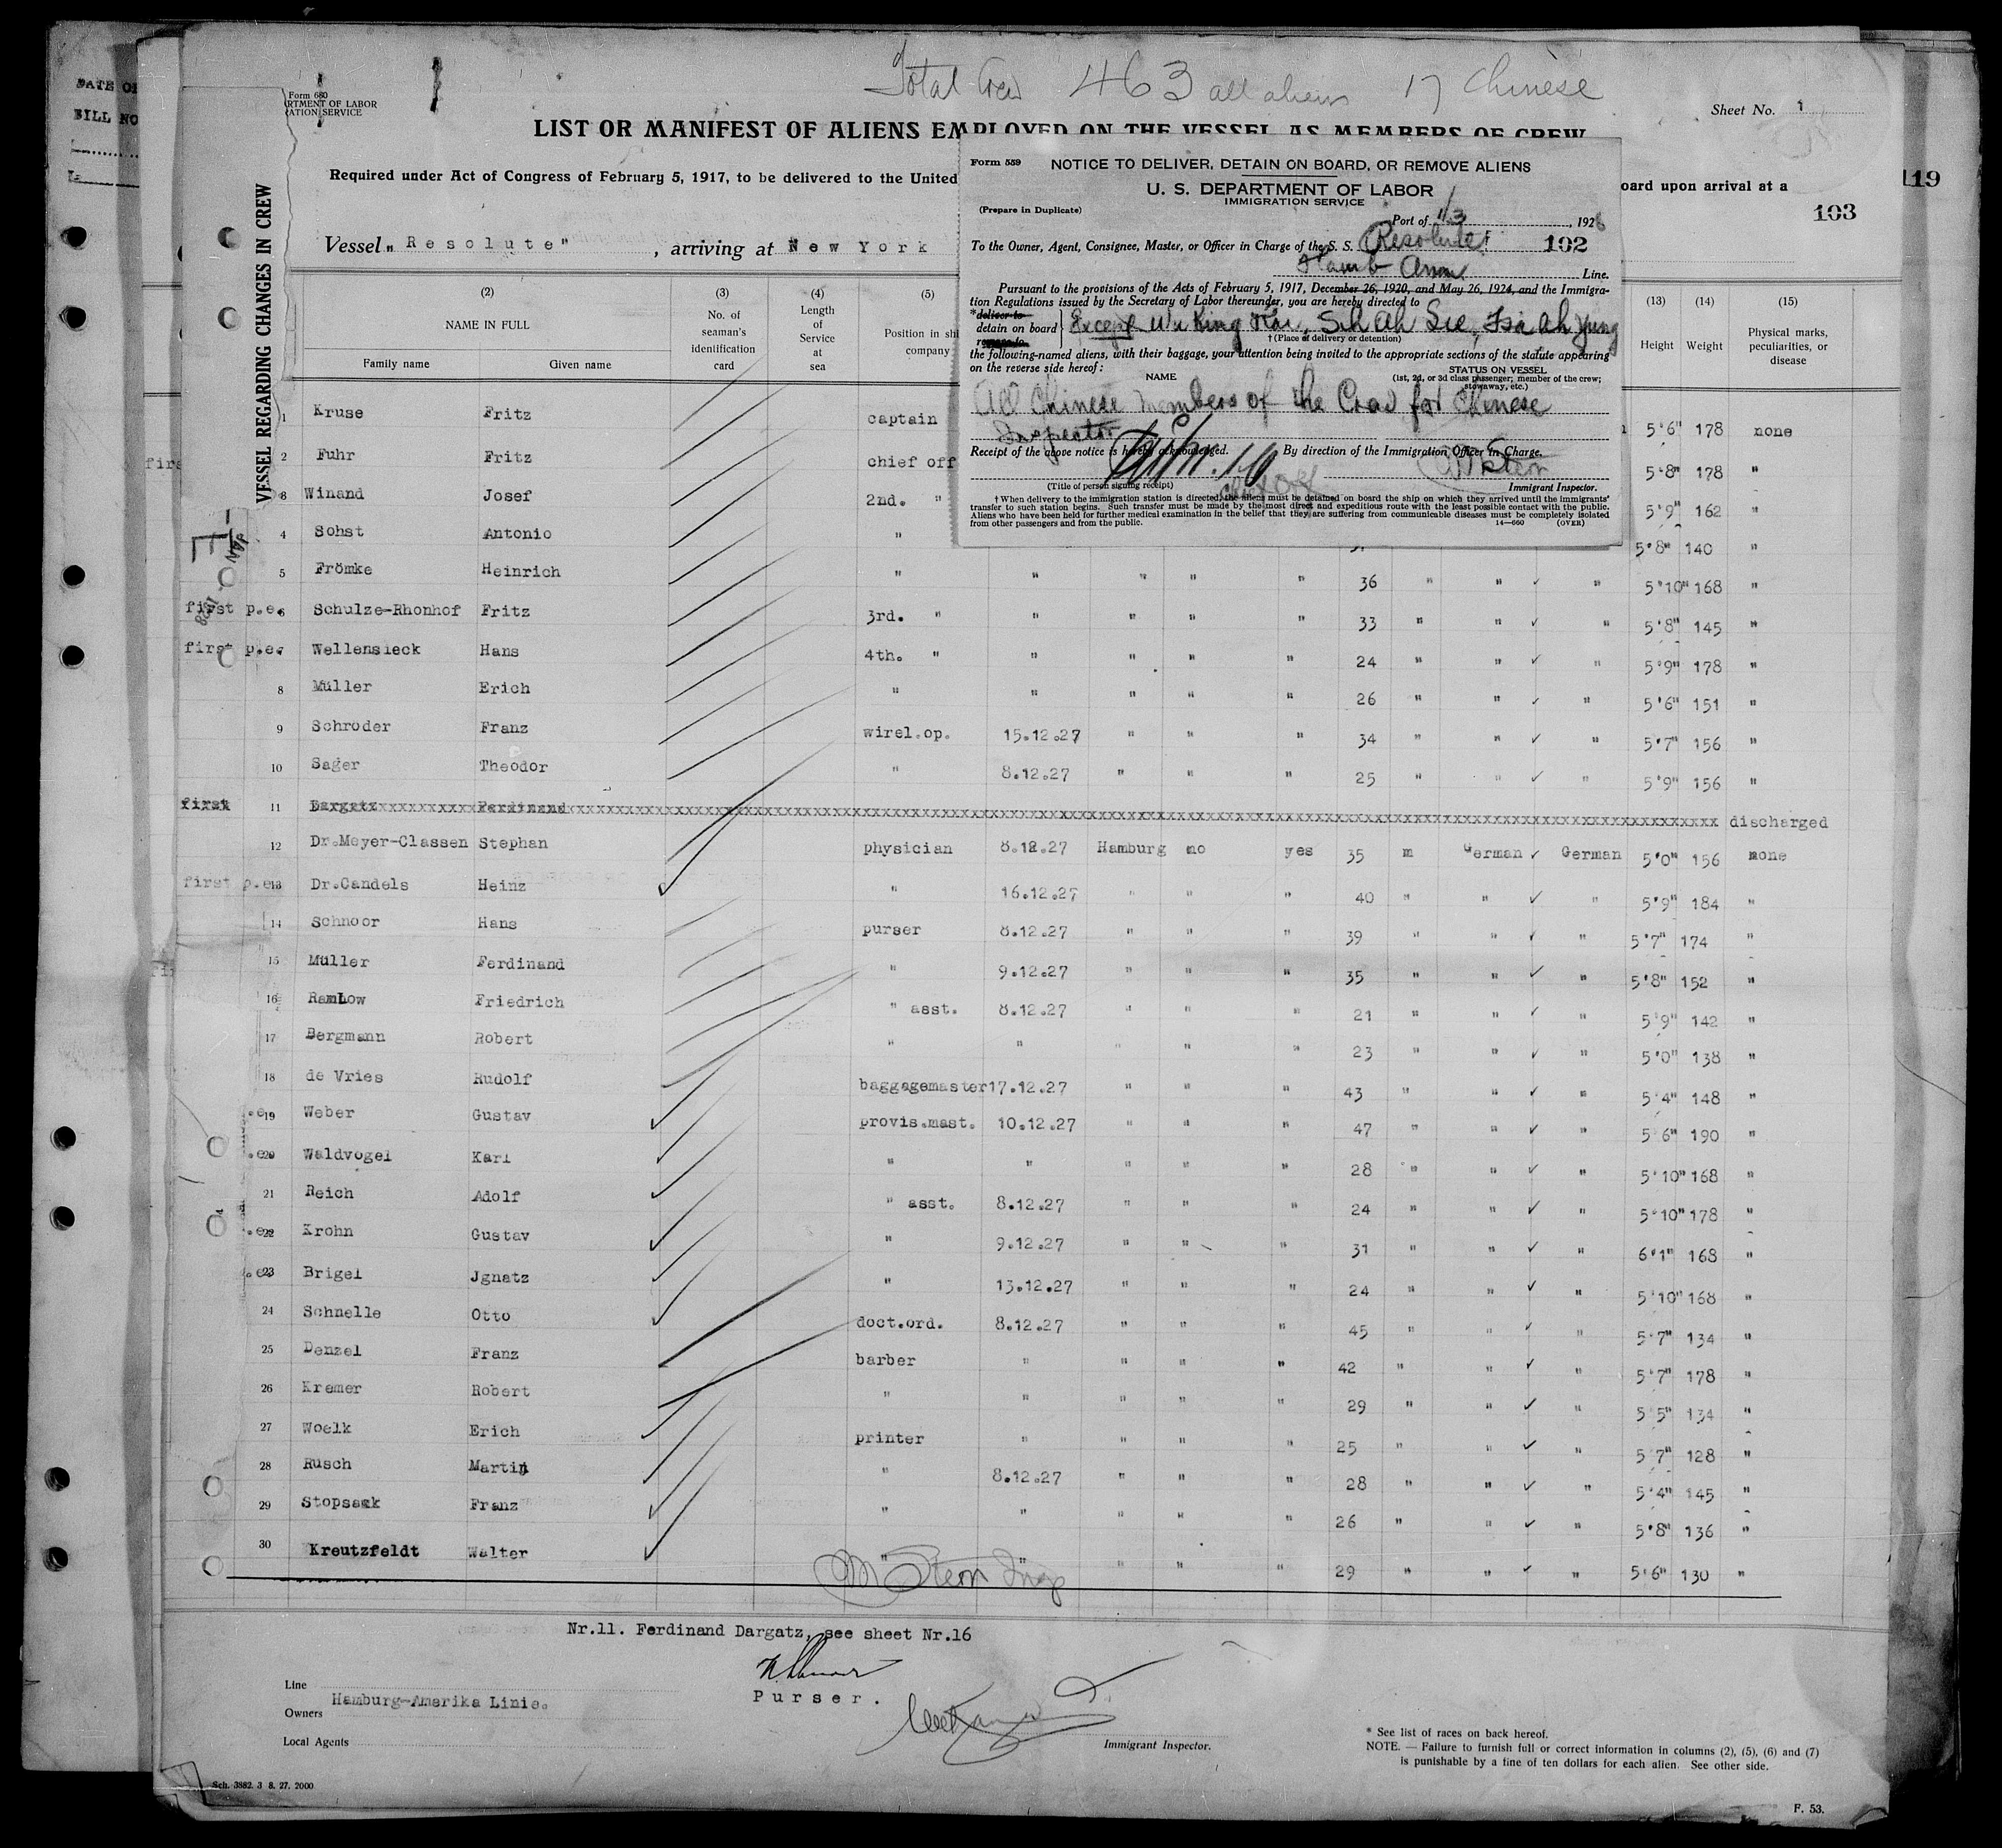 Total Crew 463 all aliens 17 Chinese
Form 680
RTMENT OF LABOR
ATION SERVICE
Sheet No. 1
DATE OF
BILL NO
LIST OR MANIFEST OF ALIENS EMPLOYED ON THE VESSEL AS MEMBERS OF CREW
Required under Act of Congress of February 5, 1917, to be delivered to the United
oard upon arrival at a
119
103
Vessel "Resolute", arriving at New York
VESSEL REGARDING CHANGES IN CREW
Form 559
NOTICE TO DELIVER, DETAIN ON BOARD, OR REMOVE ALIENS
U. S. DEPARTMENT OF LABOR
IMMIGRATION SERVICE
(Prepare in Duplicate)
Port of 1/3, 1928
To the Owner, Agent, Consignee, Master, or Officer in Charge of the S. S. Resolute 102
Hamb Am. Line.
Pursuant to the provisions of the Acts of February 5, 1917, December 26, 1920, and May 26, 1924, and the Immigra-
tion Regulations issued by the Secretary of Labor thereunder, you are hereby directed to
*deliver to
detain on board
remove to
Except Wu King Kai, Sih Ah Sue, Tsia Ah Yung
†(Place of delivery or detention)
the following-named aliens, with their baggage, your attention being invited to the appropriate sections of the statute appearing
on the reverse side hereof:
NAME
STATUS ON VESSEL
(1st, 2d, or 3d class passenger; member of the crew;
stowaway, etc.)
All Chinese members of the Crew for Chinese
Inspector
Receipt of the above notice is hereby acknowledged. By direction of the Immigration Officer in Charge.
M Stern
(Title of person signing receipt)
Immigrant Inspector.
†When delivery to the immigration station is directed, the aliens must be detained on board the ship on which they arrived until the immigrants'
transfer to such station begins. Such transfer must be made by the most direct and expeditious route with the least possible contact with the public.
Aliens who have been held for further medical examination in the belief that they are suffering from communicable diseases must be completely isolated
from other passengers and from the public.
14—660 (OVER)
(2) (3) (4) (5) (13) (14) (15)
NAME IN FULL
Family name
Given name
No. of
seaman's
identification
card
Length
of
Service
at
sea
Position in shi
company
Height
Weight
Physical marks,
peculiarities, or
disease
1 Kruse Fritz captain 5'6" 178 none
2 Fuhr Fritz chief off 5'8" 178 "
3 Winand Josef 2nd. " 5'9" 162 "
4 Sohst Antonio " 5'8" 140 "
5 Frömke Heinrich " " " " " 36 " " ✓ " 5'10" 168 "
first p.e. 6 Schulze-Rhonhof Fritz 3rd. " " " " " 33 " " ✓ " 5'8" 145 "
first p.e. 7 Wellensieck Hans 4th. " " " " " 24 " " ✓ " 5'9" 178 "
8 Müller Erich " " " " " 26 " " ✓ " 5'6" 151 "
9 Schröder Franz wirel.op. 15.12.27 " " " 34 " " ✓ " 5'7" 156 "
10 Sager Theodor " 8.12.27 " " " 25 " " ✓ " 5'9" 156 "
first 11 Dargatz Ferdinand discharged
12 Dr.Meyer-Classen Stephan physician 8.12.27 Hamburg no yes 35 m German ✓ German 5'0" 156 none
first p.e. 13 Dr.Candels Heinz " 16.12.27 " " " 40 " " ✓ " 5'9" 184 "
14 Schnoor Hans purser 8.12.27 " " " 39 " " ✓ " 5'7" 174 "
15 Müller Ferdinand " 9.12.27 " " " 35 " " ✓ " 5'8" 152 "
16 Ramlow Friedrich " asst. 8.12.27 " " " 21 " " ✓ " 5'9" 142 "
17 Bergmann Robert " " " " " 23 " " ✓ " 5'0" 138 "
18 de Vries Rudolf baggagemaster 17.12.27 " " " 43 " " ✓ " 5'4" 148 "
.e. 19 Weber Gustav provis.mast. 10.12.27 " " " 47 " " ✓ " 5'6" 190 "
.e. 20 Waldvogel Karl " " " " " 28 " " ✓ " 5'10" 168 "
21 Reich Adolf " asst. 8.12.27 " " " 24 " " ✓ " 5'10" 178 "
.e. 22 Krohn Gustav " 9.12.27 " " " 31 " " ✓ " 6'1" 168 "
.e. 23 Brigel Jgnatz " 13.12.27 " " " 24 " " ✓ " 5'10" 168 "
24 Schnelle Otto doct.ord. 8.12.27 " " " 45 " " ✓ " 5'7" 134 "
25 Denzel Franz barber " " " " 42 " " ✓ " 5'7" 178 "
26 Kremer Robert " " " " " 29 " " ✓ " 5'5" 134 "
27 Woelk Erich printer " " " " 25 " " ✓ " 5'7" 128 "
28 Rusch Martin " 8.12.27 " " " 28 " " ✓ " 5'4" 145 "
29 Stopsack Franz " " " " " 26 " " ✓ " 5'8" 136 "
30 Kreutzfeldt Walter " " " " " 29 " " ✓ " 5'6" 130 "
M Stern Insp
Nr.11. Ferdinand Dargatz, see sheet Nr.16
Purser.
Line
Hamburg-Amerika Linie.
Owners
Local Agents
Immigrant Inspector.
* See list of races on back hereof.
NOTE. — Failure to furnish full or correct information in columns (2), (5), (6) and (7)
is punishable by a fine of ten dollars for each alien. See other side.
Sch. 3882. 3 8. 27. 2000
F. 53.